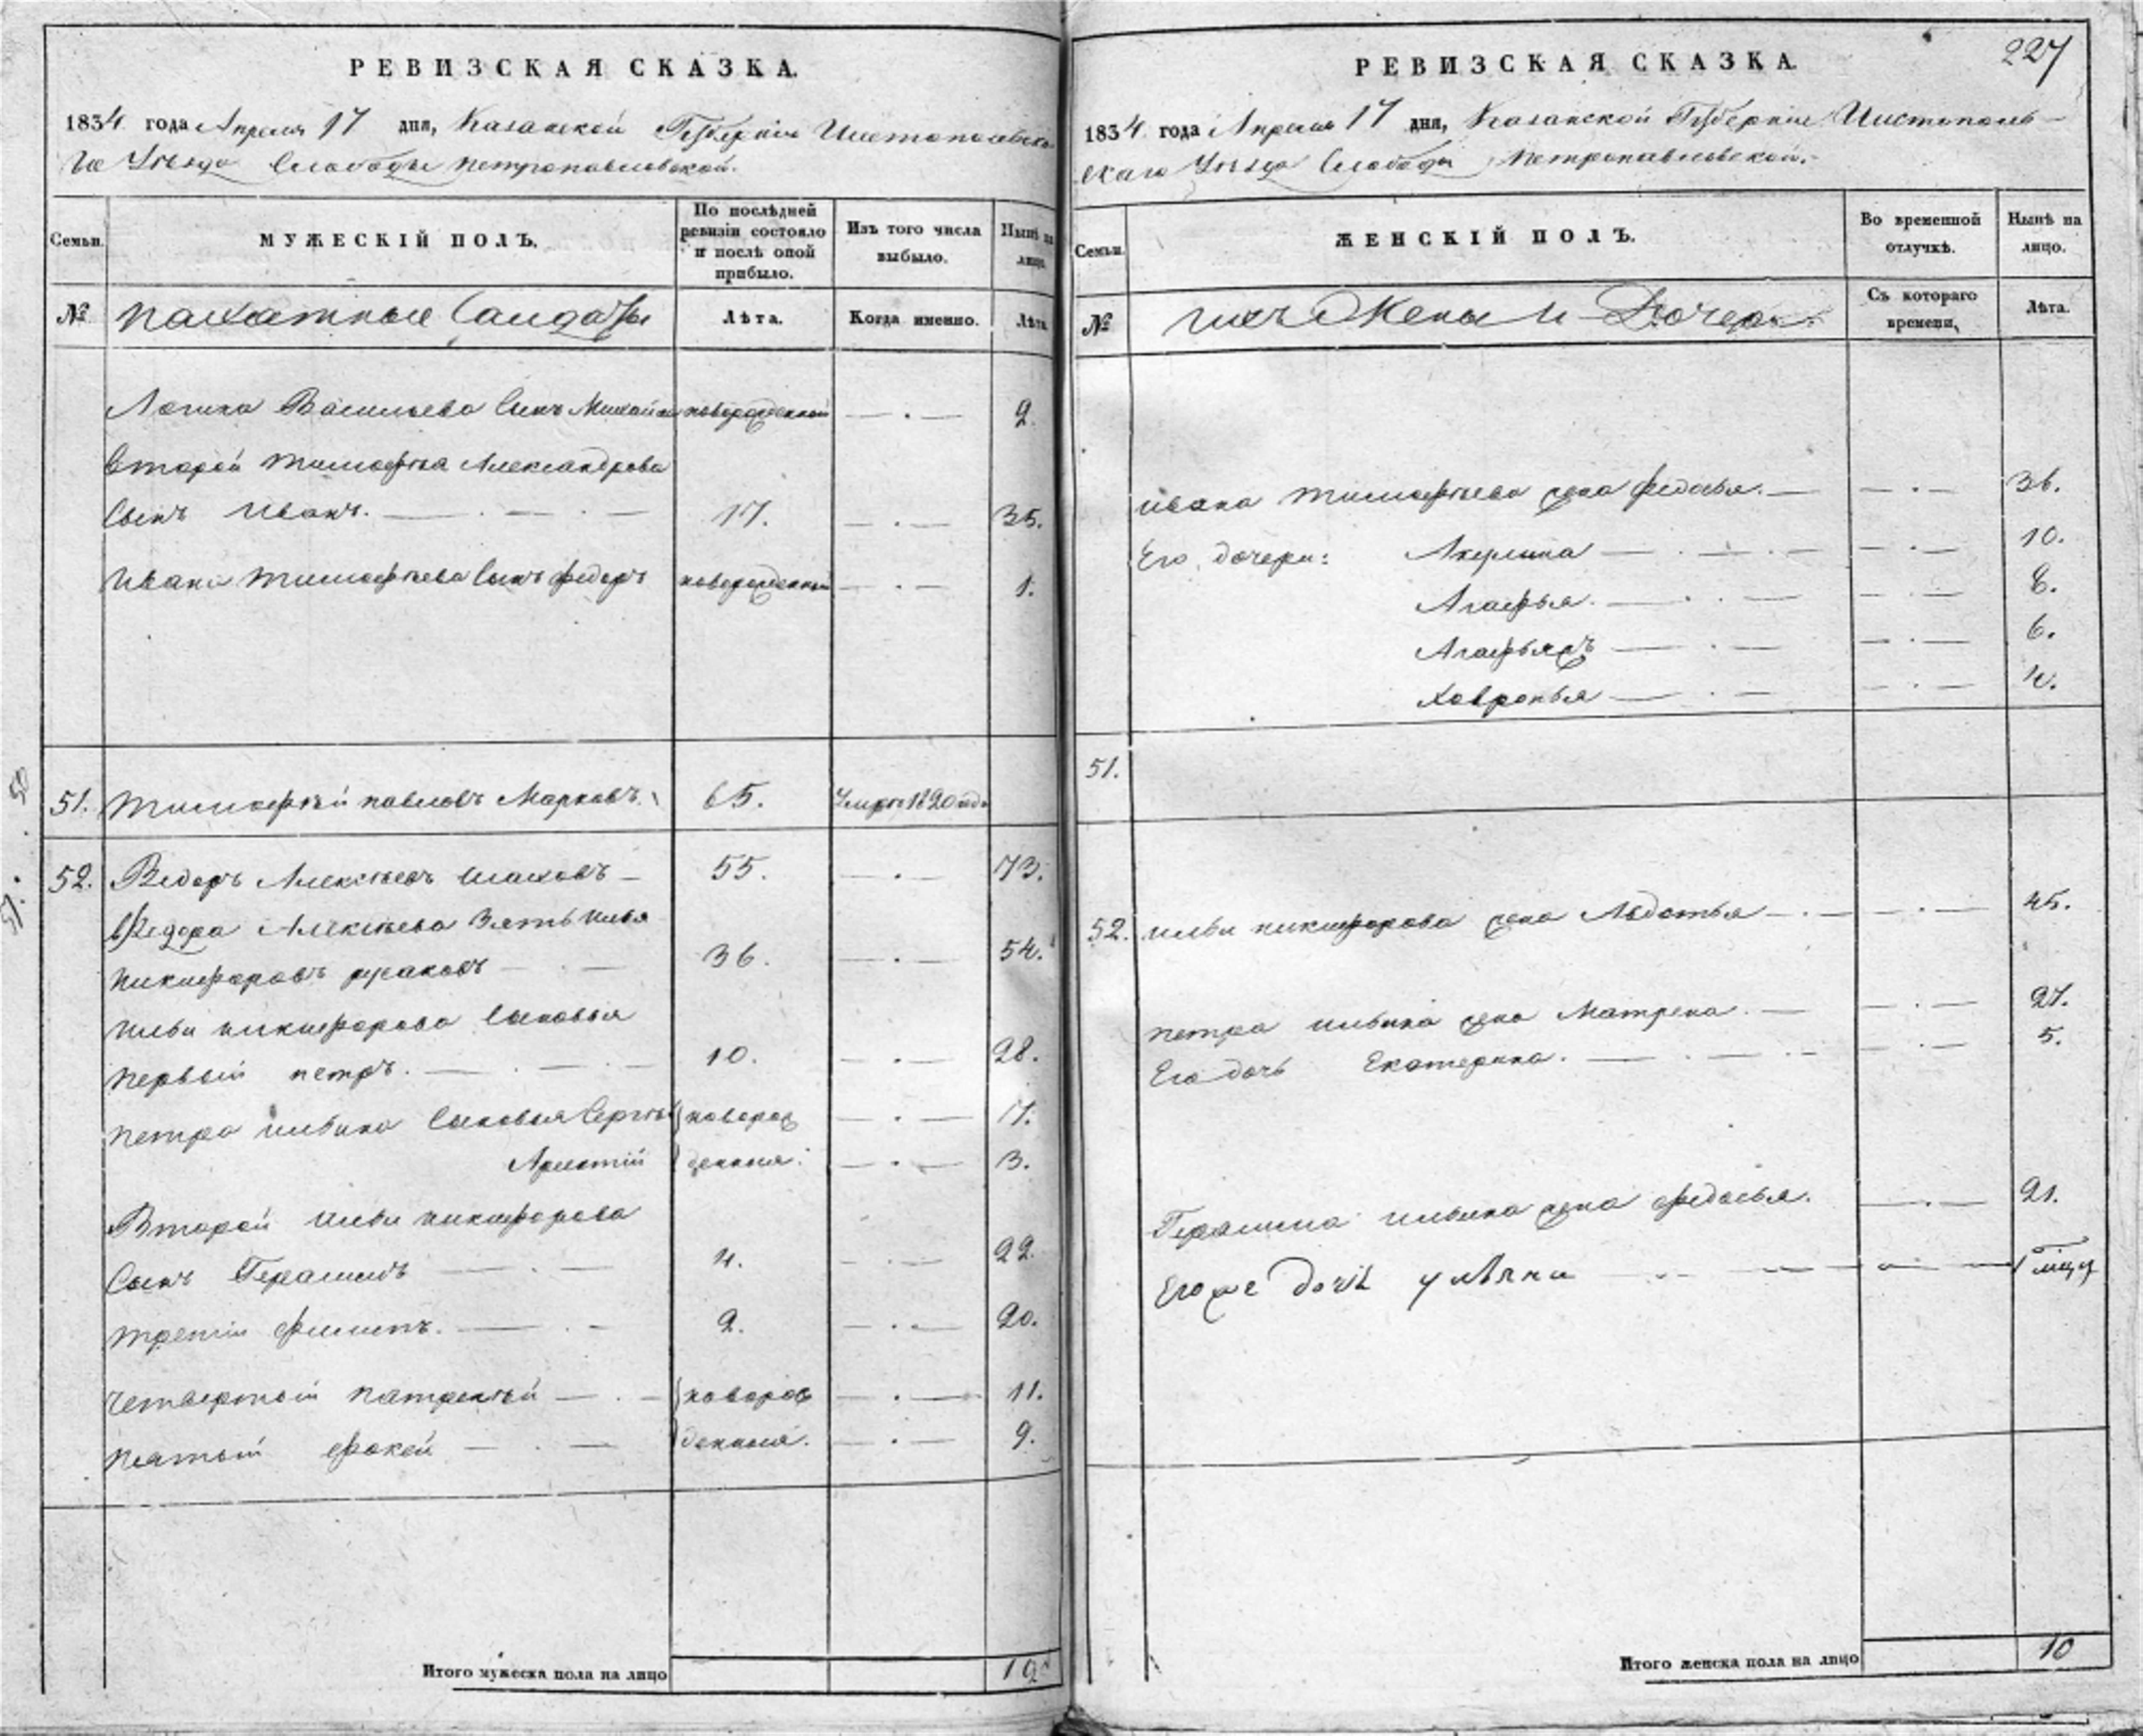 РЕВИЗСКАЯ СКАЗКА.
1834 года Апреля 17 дня, Казанской Губернии Чистопольска
го Уѣзда Слободы Петропавловской.
Семьи.
МУЖЕСКІЙ ПОЛЪ.
По послѣдней ревизіи состояло и послѣ оной прибыло.
Изъ того числа выбыло.
Нынѣ на лицо.
№
Пахатные Салдаты
Лѣта.
Когда именно.
Лѣта.
Логина Васильева Сынъ Михайла новорожденный — . — 2.
Второй Тимофѣя Александрова
Сынъ Иванъ. — . — . — 17. — . — 35.
Ивана Тимофѣева Сынъ Федоръ новорожденный — . — 1.
50
51. Тимофѣй Павловъ Марковъ. 65. Умре 1820 года
51.
52. Ѳедоръ Алексѣевъ — 55. — . — 73.
Ѳедора Алексѣева Зять Илья
Никифоровъ — . — 36. — . — 54.
Ильи Никифорова Сыновья
Первый Петръ. — . — . — 10. — . — 28.
Петра Ильина Сыновья Сергѣй новорож — . — 7.
денныя. — . — 3.
Второй Ильи Никифорова
Сынъ Герасимъ — . — 4. — . — 22.
Третій Филипъ. — . — 2. — . — 20.
Четвертый Патрекѣй — . — новорож — . — 11.
Пятый Фокей — . — денныя. — . — 9.
Итого мужеска пола на лицо 12
227
РЕВИЗСКАЯ СКАЗКА.
1834 года Апреля 17 дня, Казанской Губернии Чистополь-
скаго Уѣзда Слободы Петропавловской.
Семьи.
ЖЕНСКІЙ ПОЛЪ.
Во временной отлучкѣ.
Нынѣ на лицо.
№
ихъ Жены и Дочери.
Съ котораго времени.
Лѣта.
Ивана Тимофѣева жена Федосья. — — . — 36.
Его дочери: Акулина — . — . — — . — 10.
Агафья. — . — — . — 8.
— . — — . — 6.
Хавронья — . — — . — 4.
51.
52. Ильи Никифорова жена Авдотья — . — — . — 45.
Петра Ильина жена Матрена. — — . — 27.
Его дочь Екатерина. — . — . . — . — 5.
Герасима Ильина жена Федосья. — . — 21.
Егоже дочь Ульяна — . — 1 мѣц
Итого женска пола на лицо 10